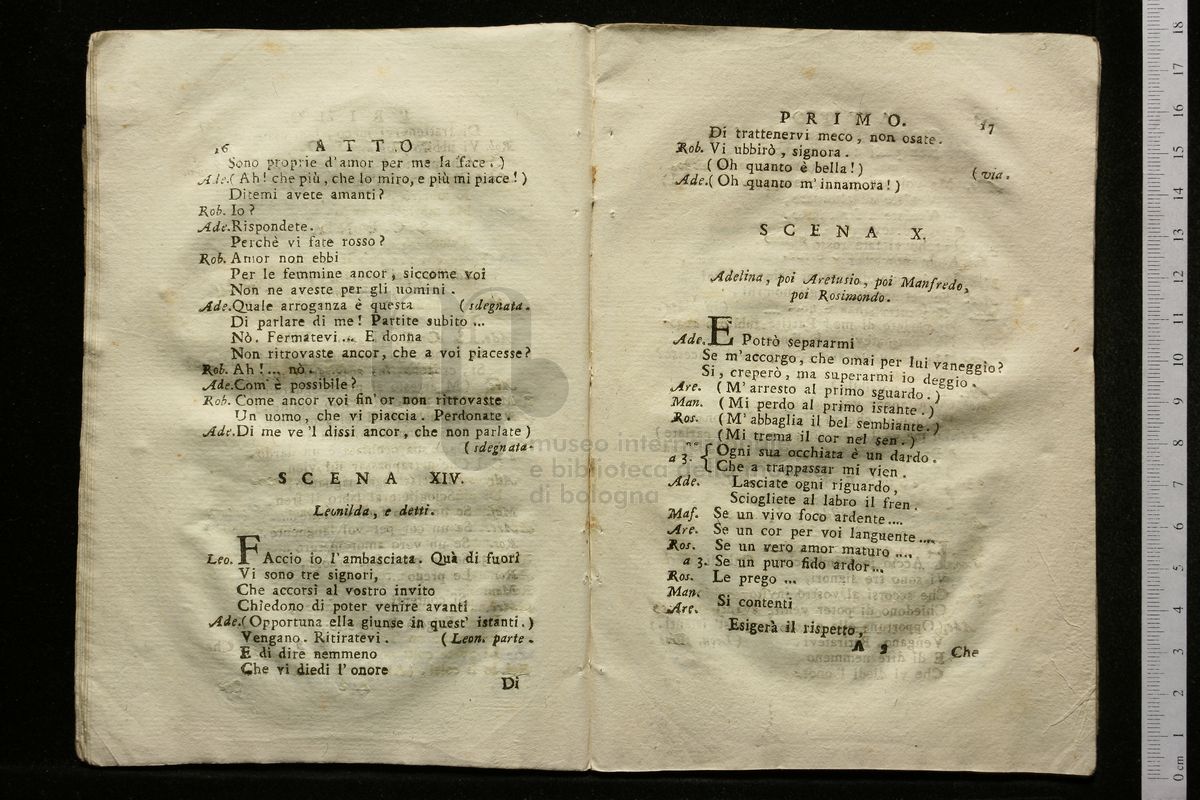 16 ATTO
Sono proprie d'amor per me la face.)
Ade.(Ah! che più, che lo miro, e più mi piace!)
Ditemi avete amanti?
Rob. Io?
Ade.Rispondete.
Perchè vi fate rosso?
Rob. Amor non ebbi
Per le femmine ancor, siccome voi
Non ne aveste per gli uomini.
Ade.Quale arroganza è questa (sdegnata.
Di parlare di me! Partite subito ...
Nò. Fermatevi... E donna
Non ritrovaste ancor, che a voi piacesse?
Rob. Ah!... nò.
Ade.Com' è possibile?
Rob. Come ancor voi fin'or non ritrovaste
Un uomo, che vi piaccia. Perdonate.
Ade.Di me ve 'l dissi ancor, che non parlate)
(sdegnata.
SCENA XIV.
Leonilda, e detti.
Leo. FAccio io l'ambasciata. Quà di fuori
Vi sono tre signori,
Che accorsi al vostro invito
Chiedono di poter venire avanti
Ade.(Opportuna ella giunse in quest' istanti.)
Vengano. Ritiratevi. (Leon. parte.
E di dire nemmeno
Che vi diedi l'onore
Di
PRIMO. 17
Di trattenervi meco, non osate.
Rob. Vi ubbirò, signora.
(Oh quanto è bella!) (via.
Ade.(Oh quanto m'innamora!)
SCENA X.
Adelina, poi Aretusio, poi Manfredo,
poi Rosimondo.
Ade. E Potrò separarmi
Se m'accorgo, che omai per lui vaneggio?
Si, creperò, ma superarmi io deggio.
Are. (M'arresto al primo sguardo.)
Man. (Mi perdo al primo istante.)
Ros. (M'abbaglia il bel sembiante.)
(Mi trema il cor nel sen.)
a 3. { Ogni sua occhiata è un dardo.
Che a trappassar mi vien.
Ade. Lasciate ogni riguardo,
Sciogliete al labro il fren.
Maf. Se un vivo foco ardente....
Are. Se un cor per voi languente....
Ros. Se un vero amor maturo ....
a 3. Se un puro fido ardor...
Ros. Le prego ...
Man.
Are. Si contenti
Esigerà il rispetto,
A 9 Che
museo internazionale
e biblioteca della musica
di bologna
18 17 16 15 14 13 12 11 10 9 8 7 6 5 4 3 2 1 0 cm